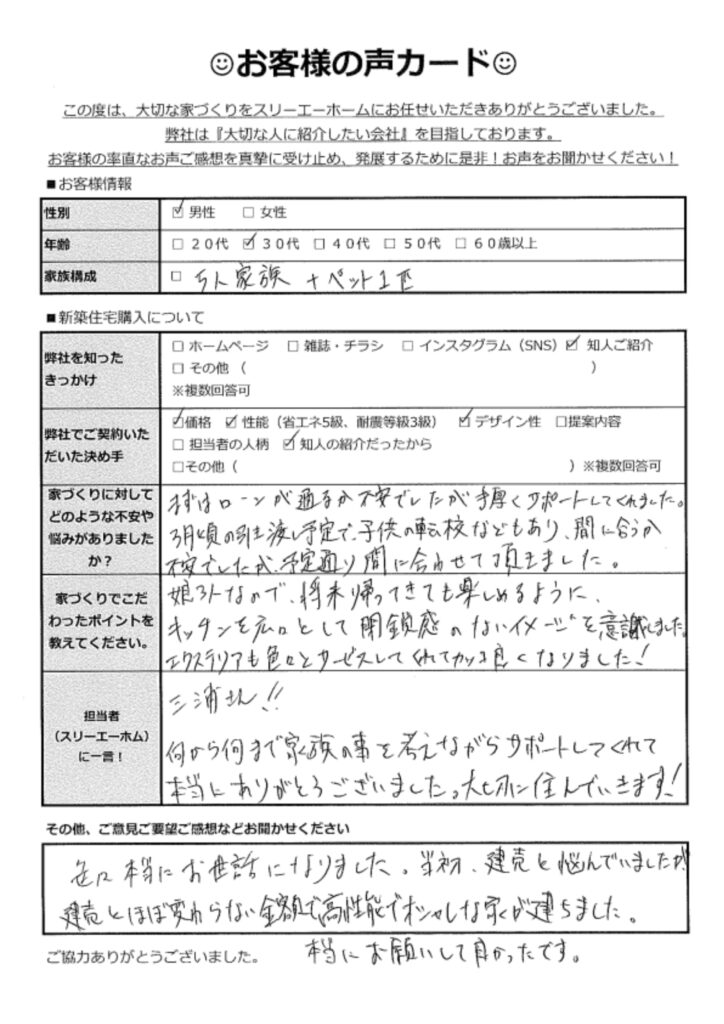 ☺お客様の声カード☺
この度は、大切な家づくりをスリーエーホームにお任せいただきありがとうございました。
弊社は『大切な人に紹介したい会社』を目指しております。
お客様の率直なお声ご感想を真摯に受け止め、発展するために是非！お声をお聞かせください！
■お客様情報
性別 ☑男性 □女性
年齢 □２０代 ☑３０代 □４０代 □５０代 □６０歳以上
家族構成 □ 5人家族 + ペット1匹
■新築住宅購入について
弊社を知ったきっかけ
□ホームページ □雑誌・チラシ □インスタグラム（SNS）☑知人ご紹介
□その他（ ）
※複数回答可
弊社でご契約いただいた決め手
☑価格 ☑性能（省エネ5級、耐震等級3級） ☑デザイン性 □提案内容
□担当者の人柄 ☑知人の紹介だったから
□その他（ ）※複数回答可
家づくりに対してどのような不安や悩みがありましたか？
まずはローンが通るか不安でしたが手厚くサポートしてくれました。
3月頃の引き渡し予定で、子供の転校などもあり、間に合うか
不安でしたが、予定通り間に合わせて頂きました。
家づくりでこだわったポイントを教えてください。
娘3人なので、将来帰ってきても楽しめるように、
キッチンを広々として閉鎖感のないイメージを意識しました。
エクステリアも色々とサービスしてくれてカッコ良くなりました！
担当者
（スリーエーホム）
に一言！
三浦さん!!
何から何まで家族の事を考えながらサポートしてくれて
本当にありがとうございました。大切に住んでいきます！
その他、ご意見ご要望ご感想などお聞かせください
本当にお世話になりました。当初、建売と悩んでいましたが
建売とほぼ変わらない金額で高性能でオシャレな家が建ちました。
本当にお願いして良かったです。
ご協力ありがとうございました。